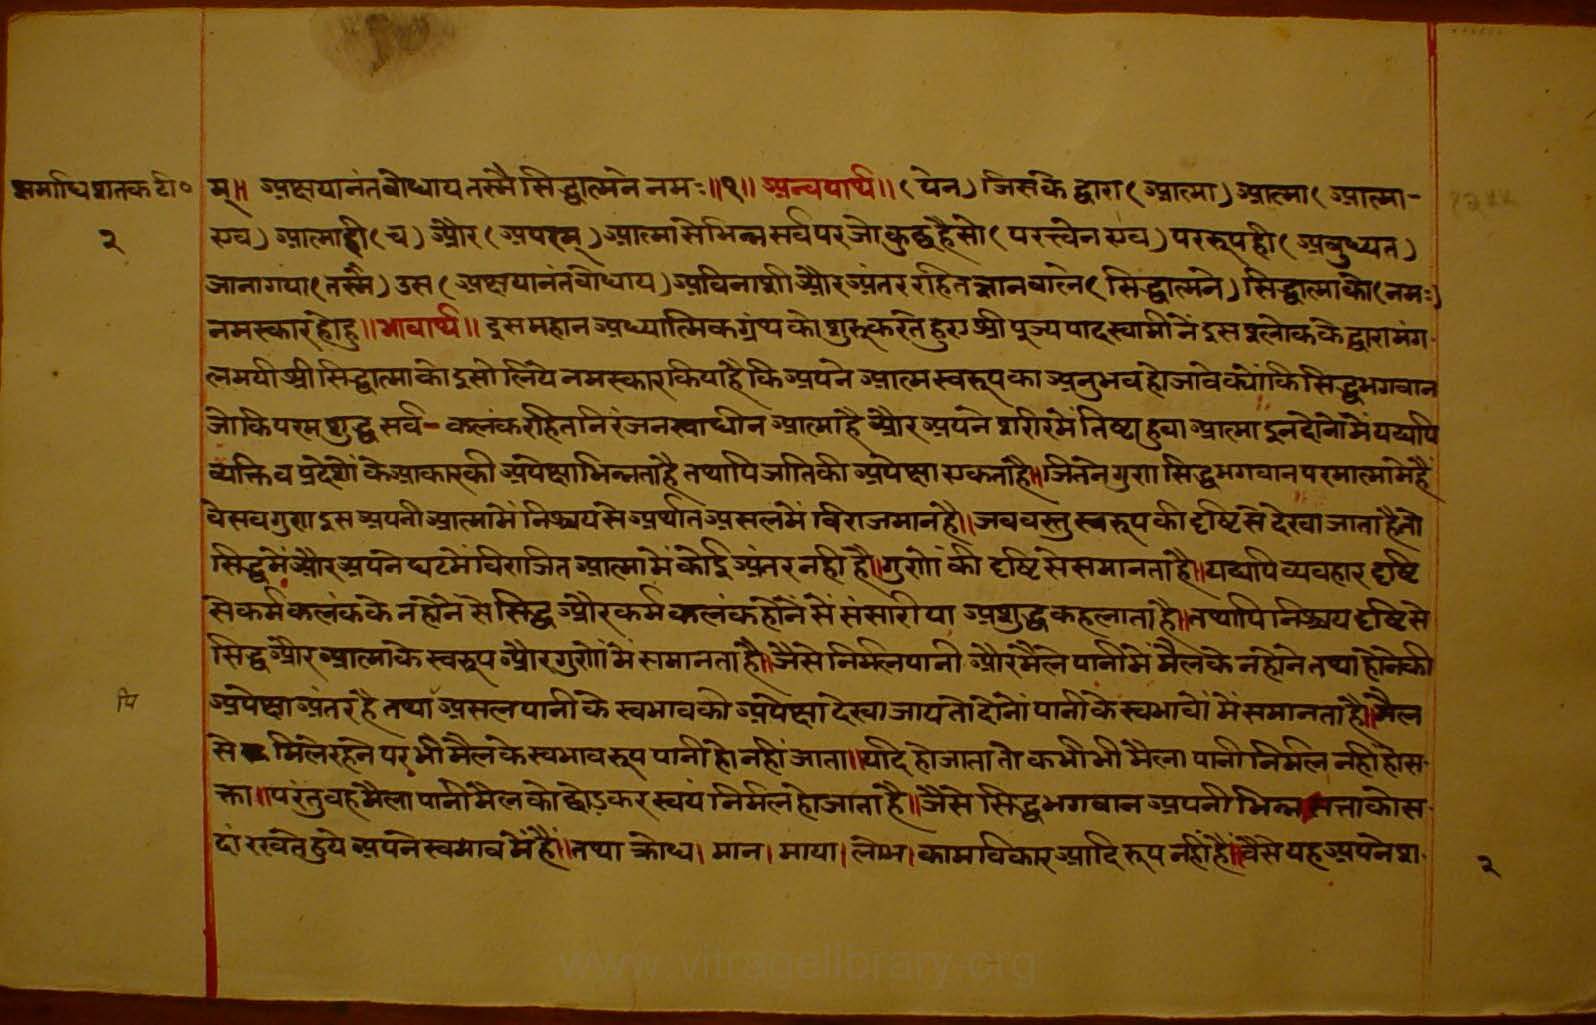 समाधिशतक टी०
२
म्॥ अक्षयानंतबोधाय तस्मै सिद्धात्मने नमः॥१॥ अन्वयार्थ॥ (येन) जिसके द्वारा (आत्मा) आत्मा (आत्मा-
एव) आत्माही (च) और (अपरम्) आत्मा से भिन्न सर्व पर जो कुछ है सो (परत्वेन एव) पररूपही (अबुध्यत)
जाना गया (तस्मै) उस (अक्षयानंतबोधाय) अविनाशी और अंतर रहित ज्ञान वाले (सिद्धात्मने) सिद्धात्मा को (नमः)
नमस्कार होहु॥ भावार्थ॥ इस महान अध्यात्मिक ग्रंथ को शुरू करते हुए श्री पूज्य पाद स्वामी नें इस श्लोक के द्वारा मंग-
लमयी श्री सिद्धात्मा को इसी लिये नमस्कार किया है कि अपने आत्म स्वरूप का अनुभव हो जावे क्योंकि सिद्ध भगवान
जो कि परम शुद्ध सर्व- कलंक रहित निरंजन स्वाधीन आत्मा है और अपने शरीर में तिष्टा हुवा आत्मा इन दोनो में यद्यपि
व्यक्ति व प्रदेशों के आकार की अपेक्षा भिन्नता है तथापि जाति की अपेक्षा एकता है॥ जितने गुण सिद्ध भगवान परमात्मा में हैं
वे सब गुण इस अपनी आत्मा में निश्चय से अर्थात असल में विराजमान है॥ जब वस्तु स्वरूप की दृष्टि से देखा जाता है तो
सिद्ध में और अपने घट में विराजित आत्मा में कोई अंतर नही है॥ गुणों की दृष्टि से समानता है॥ यद्यपि व्यवहार दृष्टि
से कर्म कलंक के न होने से सिद्ध और कर्म कलंक होनें सें संसारी या अशुद्ध कहलाता है॥ तथापि निश्चय दृष्टि से
सिद्ध और आत्मा के स्वरूप और गुणों में समानता है॥ जैसे निर्मल पानी और मैले पानी में मैल के न होने तथा होने की
अपेक्षा अंतर है तथा असल पानी के स्वभाव को अपेक्षा देखा जाय तो दोनों पानी के स्वभावों में समानता है॥ मैल
पि
से मिले रहने पर भी मैल के स्वभाव रूप पानी हो नहीं जाता॥ यदि हो जाता तो कभी भी मैला पानी निर्मल नही हो स-
क्ता॥ परंतु वह मैला पानी मैल को छोड़कर स्वयं निर्मल हो जाता है॥ जैसे सिद्ध भगवान अपनी भिन्न सत्ता को स-
दां रखते हुये अपने स्वभाव में हैं॥ तथा क्रोध। मान। माया। लोभ। काम विकार आदि रूप नहीं हैं॥ वैसे यह अपने श-
२
www.vitragelibrary.org